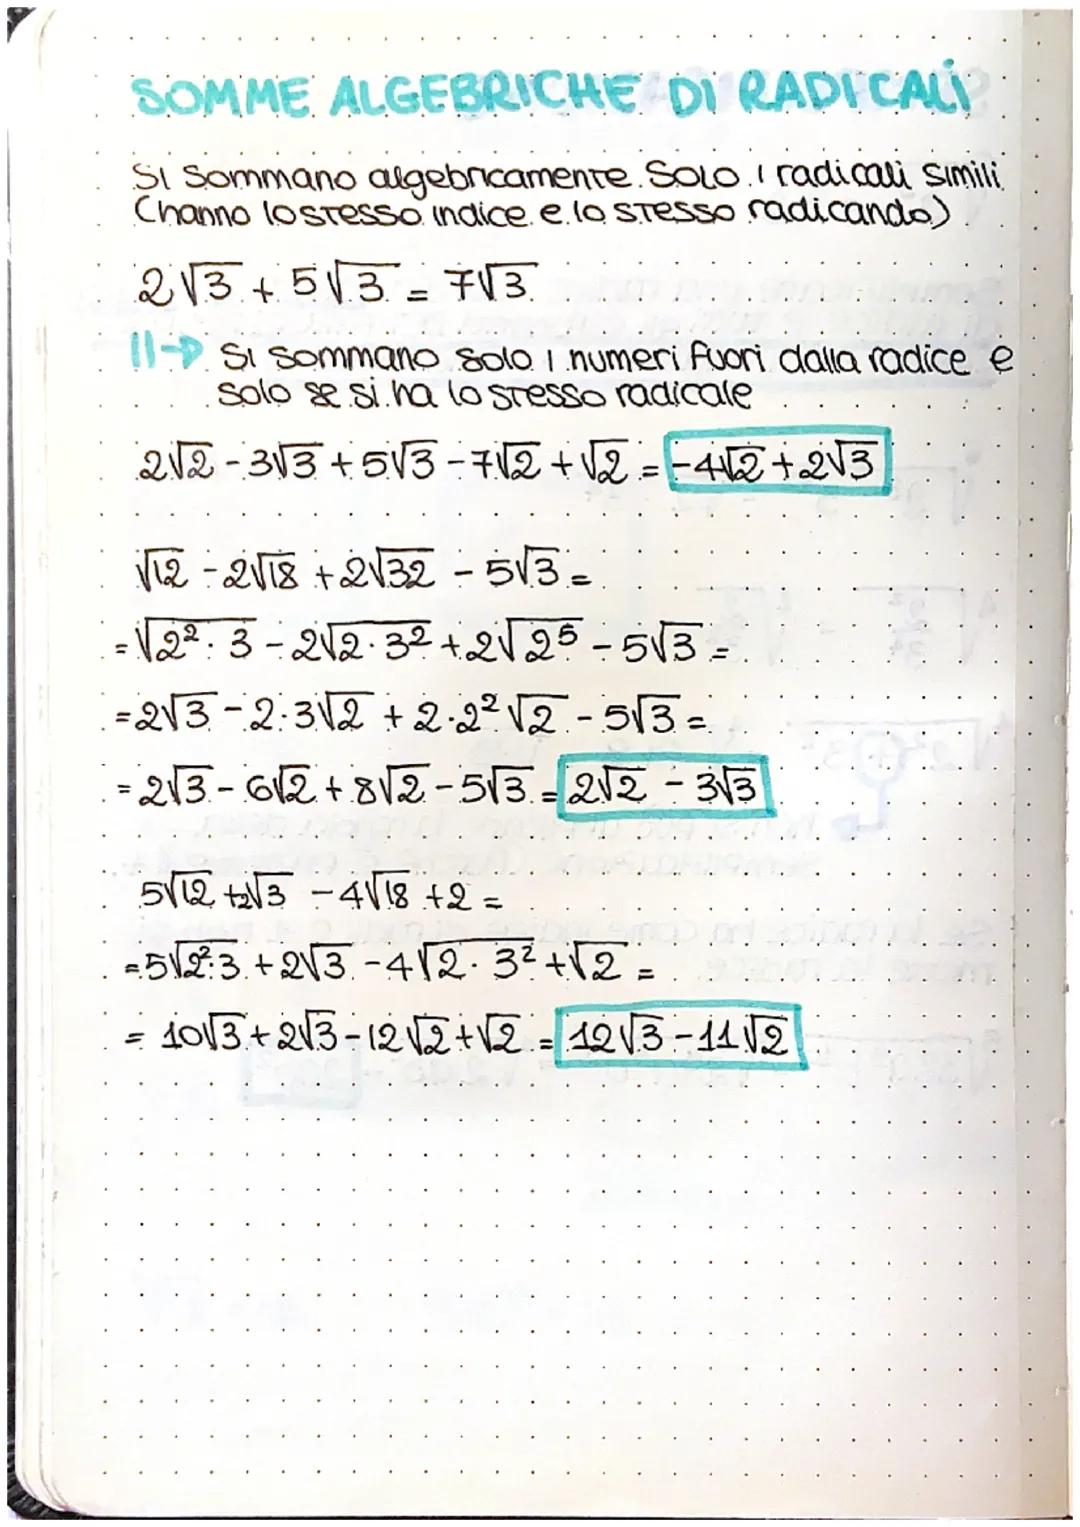 SOMME ALGEBRICHE DI RADICALI
Si sommano algebricamente solo i radicali simili
(hanno lo stesso indice e lo stesso radicando)
2√3 + 5√3 = 7√3
Si sommano solo i numeri fuori dalla radice e
solo se si ha lo stesso radicale
2√2 - 3√3 + 5√3 - 7√2 + √2 = -4√2 + 2√3
√12 - 2√18 + 2√32 - 5√3 =
= √2² · 3 - 2√2 · 3² + 2√2⁵ - 5√3 =
= 2√3 - 2·3√2 + 2·2²√2 - 5√3 =
= 2√3 - 6√2 + 8√2 - 5√3 = 2√2 - 3√3
5√12 + 2√3 - 4√18 + 2 =
= 5√2²·3 + 2√3 - 4√2 · 3² + √2 =
= 10√3 + 2√3 - 12√2 + √2 = 12√3 - 11√2